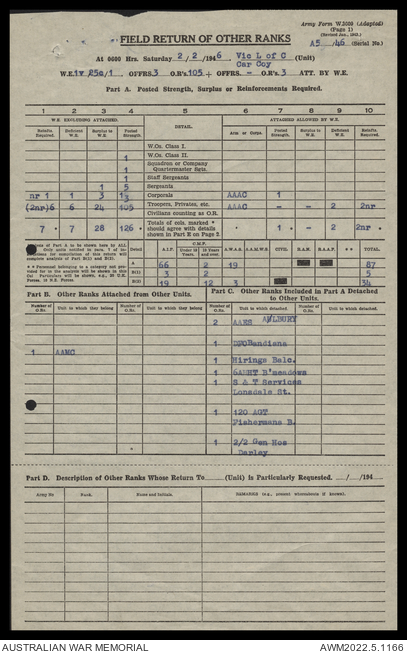 Army Form W.3009 (Adapted)
(Page 1)
FIELD RETURN OF OTHER RANKS
A5 /46 (Serial No.)
At 0600 Hrs. Saturday 2/2/1946 Vic L of C (Unit)
Car Coy
W.E. 1v 25c/1 OFFRS. 3 O.R's. 105 + OFFRS. - O.R's. 3 ATT. BY W.E.
Part A. Posted Strength, Surplus or Reinforcements Required.
1 2 3 4 5 6 7 8 9 10
W.E. EXCLUDING ATTACHED. ATTACHED ALLOWED BY W.E.
Reinfts. Required. Deficient W.E. Surplus to W.E. Posted Strength. DETAIL. Arm or Corps. Posted Strength. Surplus to W.E. Deficient W.E. Reinfts. Required.
W.Os. Class I.
1 W.Os. Class II.
1 Squadron or Company Quartermaster Sgts.
1 Staff Sergeants
1 5 Sergeants
nr 1 1 3 13 Corporals AAAC 1
(2nr) 6 6 24 105 Troopers, Privates, etc. AAAC - - 2 2nr
Civilians counting as O.R.
7 * 7 28 126 * Totals of cols. marked * should agree with details shown in Part E on Page 3. * 1 - 2 2nr *
A 66 2 19 87
B(i) 3 2 5
B(ii) 19 12 3 34
Part B. Other Ranks Attached from Other Units.
Part C. Other Ranks Included in Part A Detached to Other Units.
Number of O.Rs. Unit to which they belong Number of O.Rs. Unit to which they belong Number of O.Rs. Unit to which detached. Number of O.Rs. Unit to which detached.
2 AAES
1 DFO Bendiena
1 AAMC
1 Hirings Balc.
1 6AUHT B'meadows
1 S & T Services
Lonsdale St.
1 120 AGT
Fishermans B.
1 2/2 Gen Hos
Darley
Part D. Description of Other Ranks Whose Return To (Unit) is Particularly Requested. / /194
Army No Rank. Name and Initials. REMARKS (e.g., present whereabouts if known).
AUSTRALIAN WAR MEMORIAL
AWM2022.5.1166